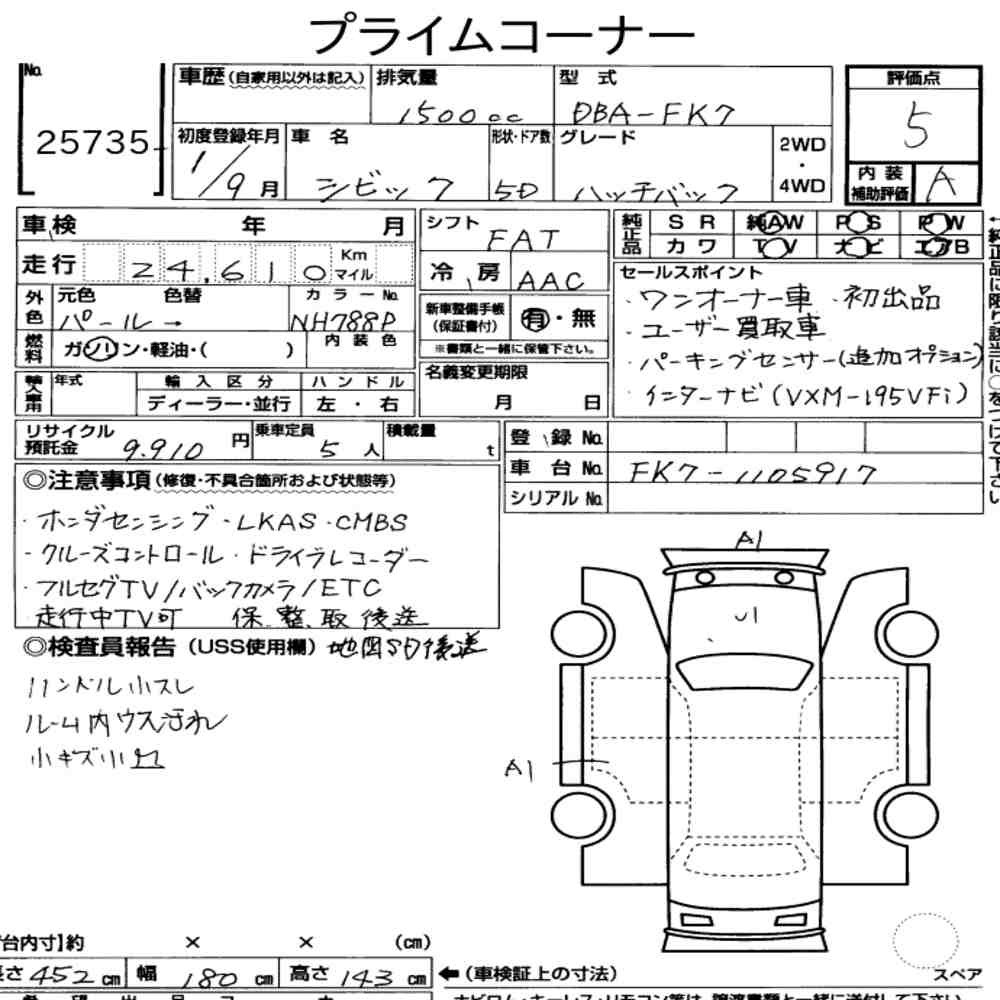 プライムコーナー
No.
25735
車歴(自家用以外は記入) 排気量 型式
1500cc DBA-FK7
初度登録年月 車名 形状・ドア数 グレード
1/9月 シビック 5D ハッチバック
2WD・4WD
評価点
5
内装補助評価 A
車検 年 月
走行 24,610 Km マイル
外色 元色 色替 カラーNo.
パール→ NH788P
燃料 ガソリン・軽油・( ) 内装色
輸入車用 年式 輸入区分 ハンドル
ディーラー・並行 左・右
リサイクル預託金 9.910円 乗車定員 5人 積載量 t
シフト FAT
冷房 AAC
新車整備手帳(保証書付) 有・無
※書類と一緒に保管下さい。
名義変更期限
月 日
純正品 SR 純AW PS PW
カワ TV ナビ エアB
セールスポイント
・ワンオーナー車 ・初出品
・ユーザー買取車
・パーキングセンサー(追加オプション)
・インターナビ(VXM-195VFi)
←純正品に限り該当に○をつけて下さい
登録No.
車台No. FK7-1105917
シリアルNo.
◎注意事項(修復・不具合箇所および状態等)
・ホンダセンシング・LKAS・CMBS
・クルーズコントロール・ドライブレコーダー
・フルセグTV/バックカメラ/ETC
走行中TV可 保、整、取 後送
◎検査員報告(USS使用欄) 地図SD後送
ハンドル小スレ
ルーム内ウス汚れ
小キズ小凹
A1
U1
A1
台内寸]約 × × (cm)
長さ452cm 幅 180cm 高さ143cm
←(車検証上の寸法)
スペア